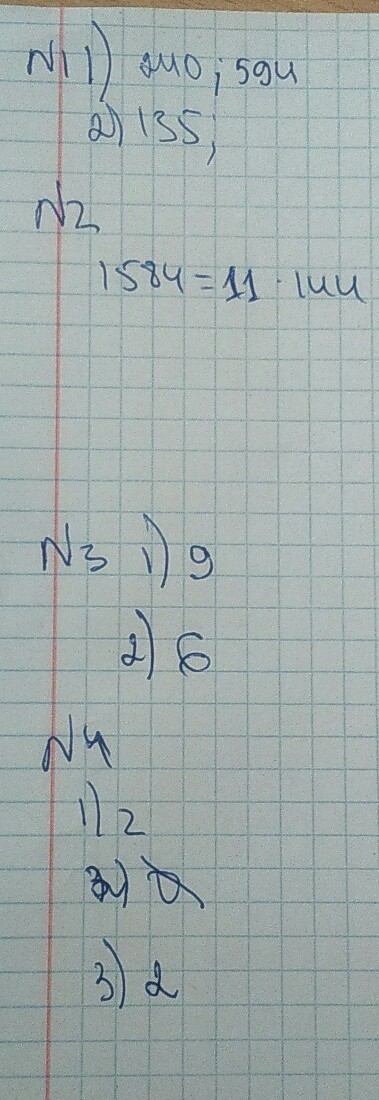 N1 1) 240; 594
2) 135;
N2
1584 = 11 · 144
N3 1) 9
2) 6
N4
1) 2
3) 2